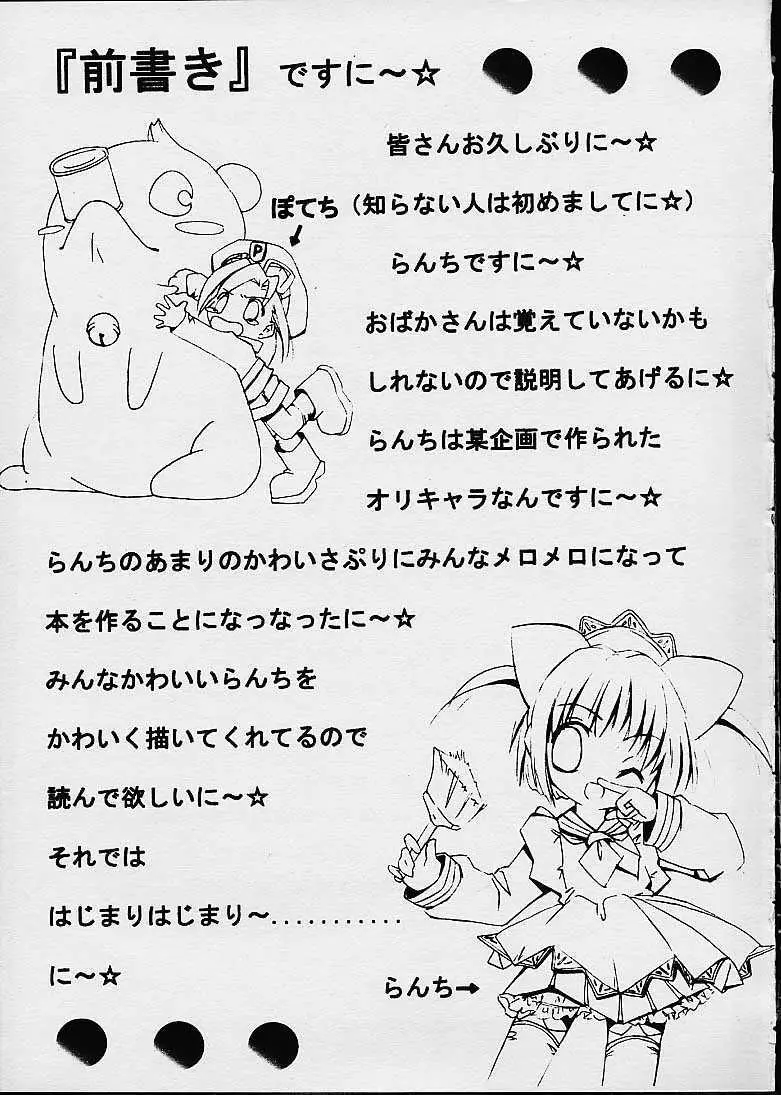 『前書き』ですに～☆
皆さんお久しぶりに～☆
ぽてち
(知らない人は初めましてに☆)
P
らんちですに～☆
おばかさんは覚えていないかも
しれないので説明してあげるに☆
らんちは某企画で作られた
オリキャラなんですに～☆
らんちのあまりのかわいさぷりにみんなメロメロになって
本を作ることになっなったに～☆
みんなかわいいらんちを
かわいく描いてくれてるので
読んで欲しいに～☆
それでは
はじまりはじまり～...........
に～☆
らんち→